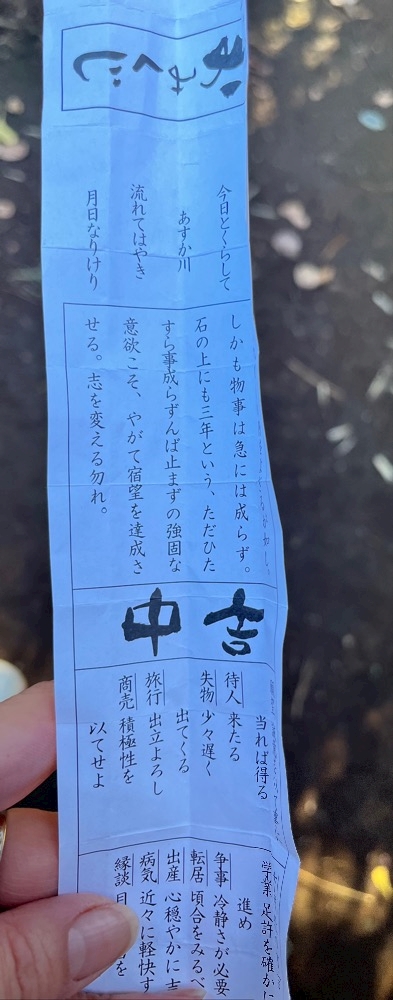 おみくじ
今日とくらして
あすか川
流れてはやき
月日なりけり
しかも物事は急には成らず。
石の上にも三年という、ただひた
すら事成らずんば止まずの強固な
意欲こそ、やがて宿望を達成さ
せる。志を変える勿れ。
中吉
当れば得る
待人 来たる
失物 少々遅く
出てくる
旅行 出立よろし
商売 積極性を
以てせよ
学業 足許を確かに
進め
争事 冷静さが必要
転居 頃合をみるべ
出産 心穏やかに吉
病気 近々に軽快す
縁談